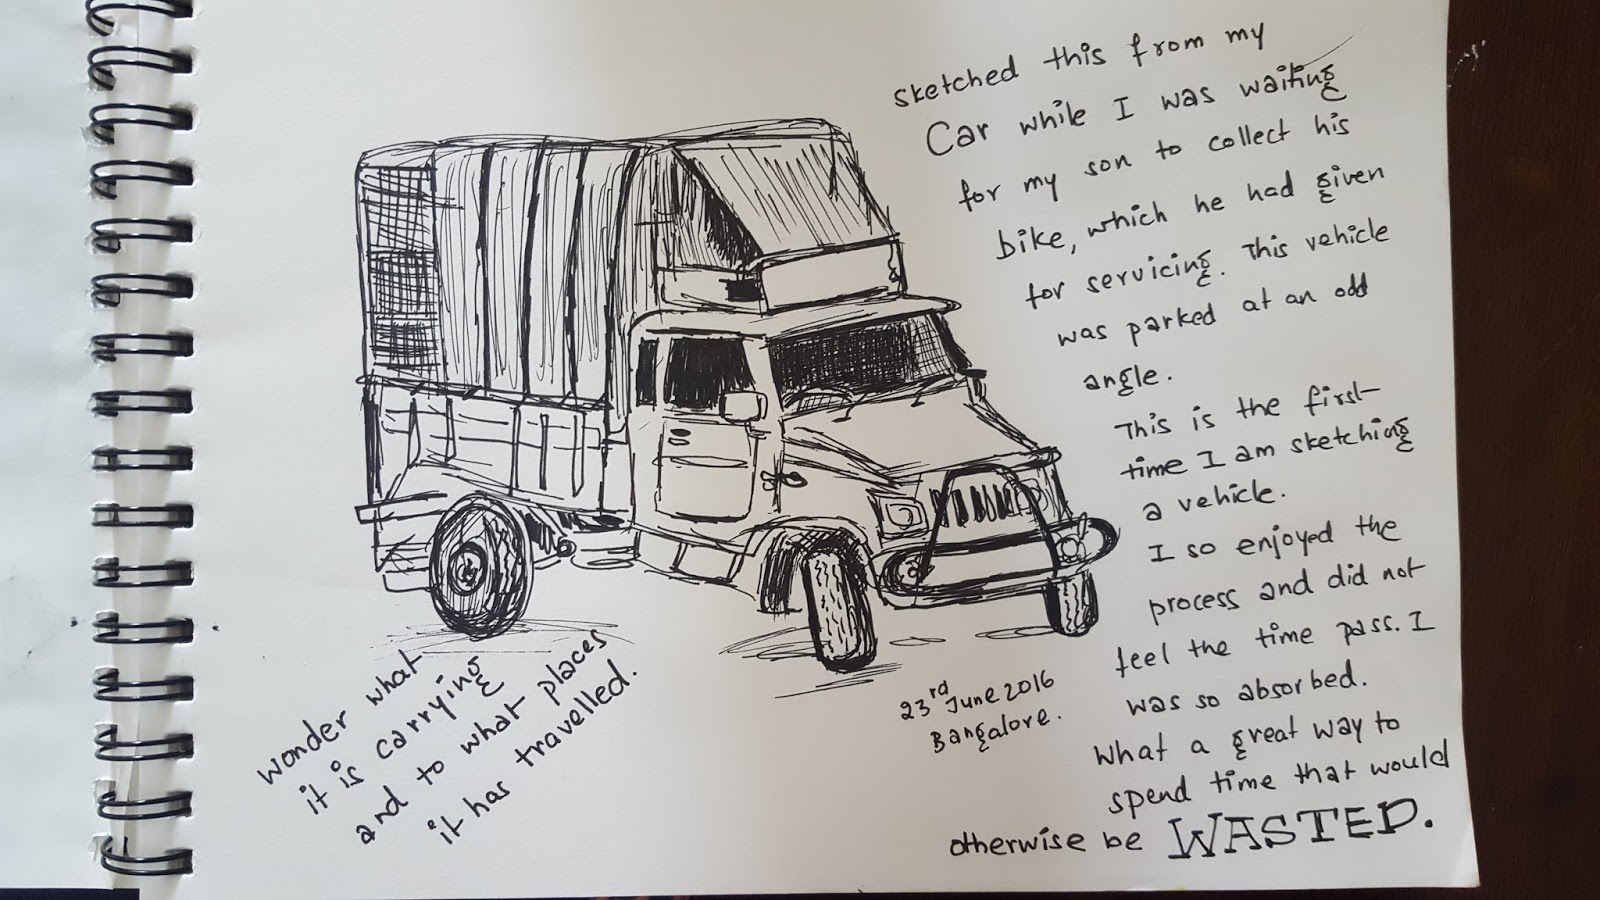 sketched this from my
Car while I was waiting
for my son to collect his
bike, which he had given
for servicing. This vehicle
was parked at an odd
angle.
This is the first
time I am sketching
a vehicle.
I so enjoyed the
process and did not
feel the time pass. I
was so absorbed.
What a great way to
spend time that would
otherwise be WASTED.
23rd June 2016
Bangalore.
wonder what
it is carrying
and to what places
it has travelled.